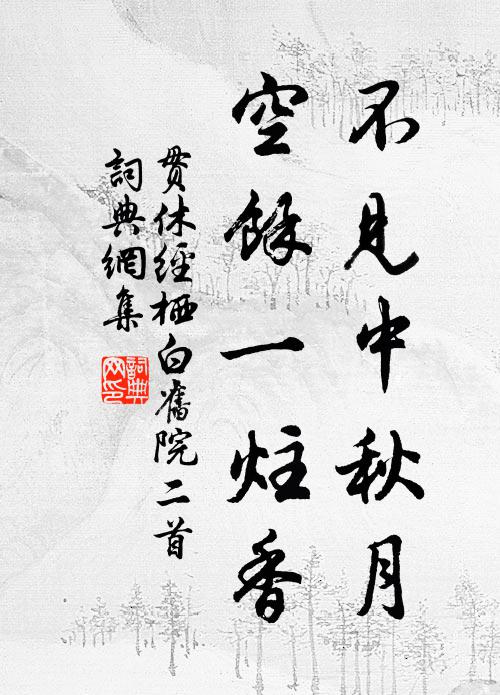 不見中秋月
空餘一炷香
貫休經栖白舊院二首
詞典網集
詞典
网印